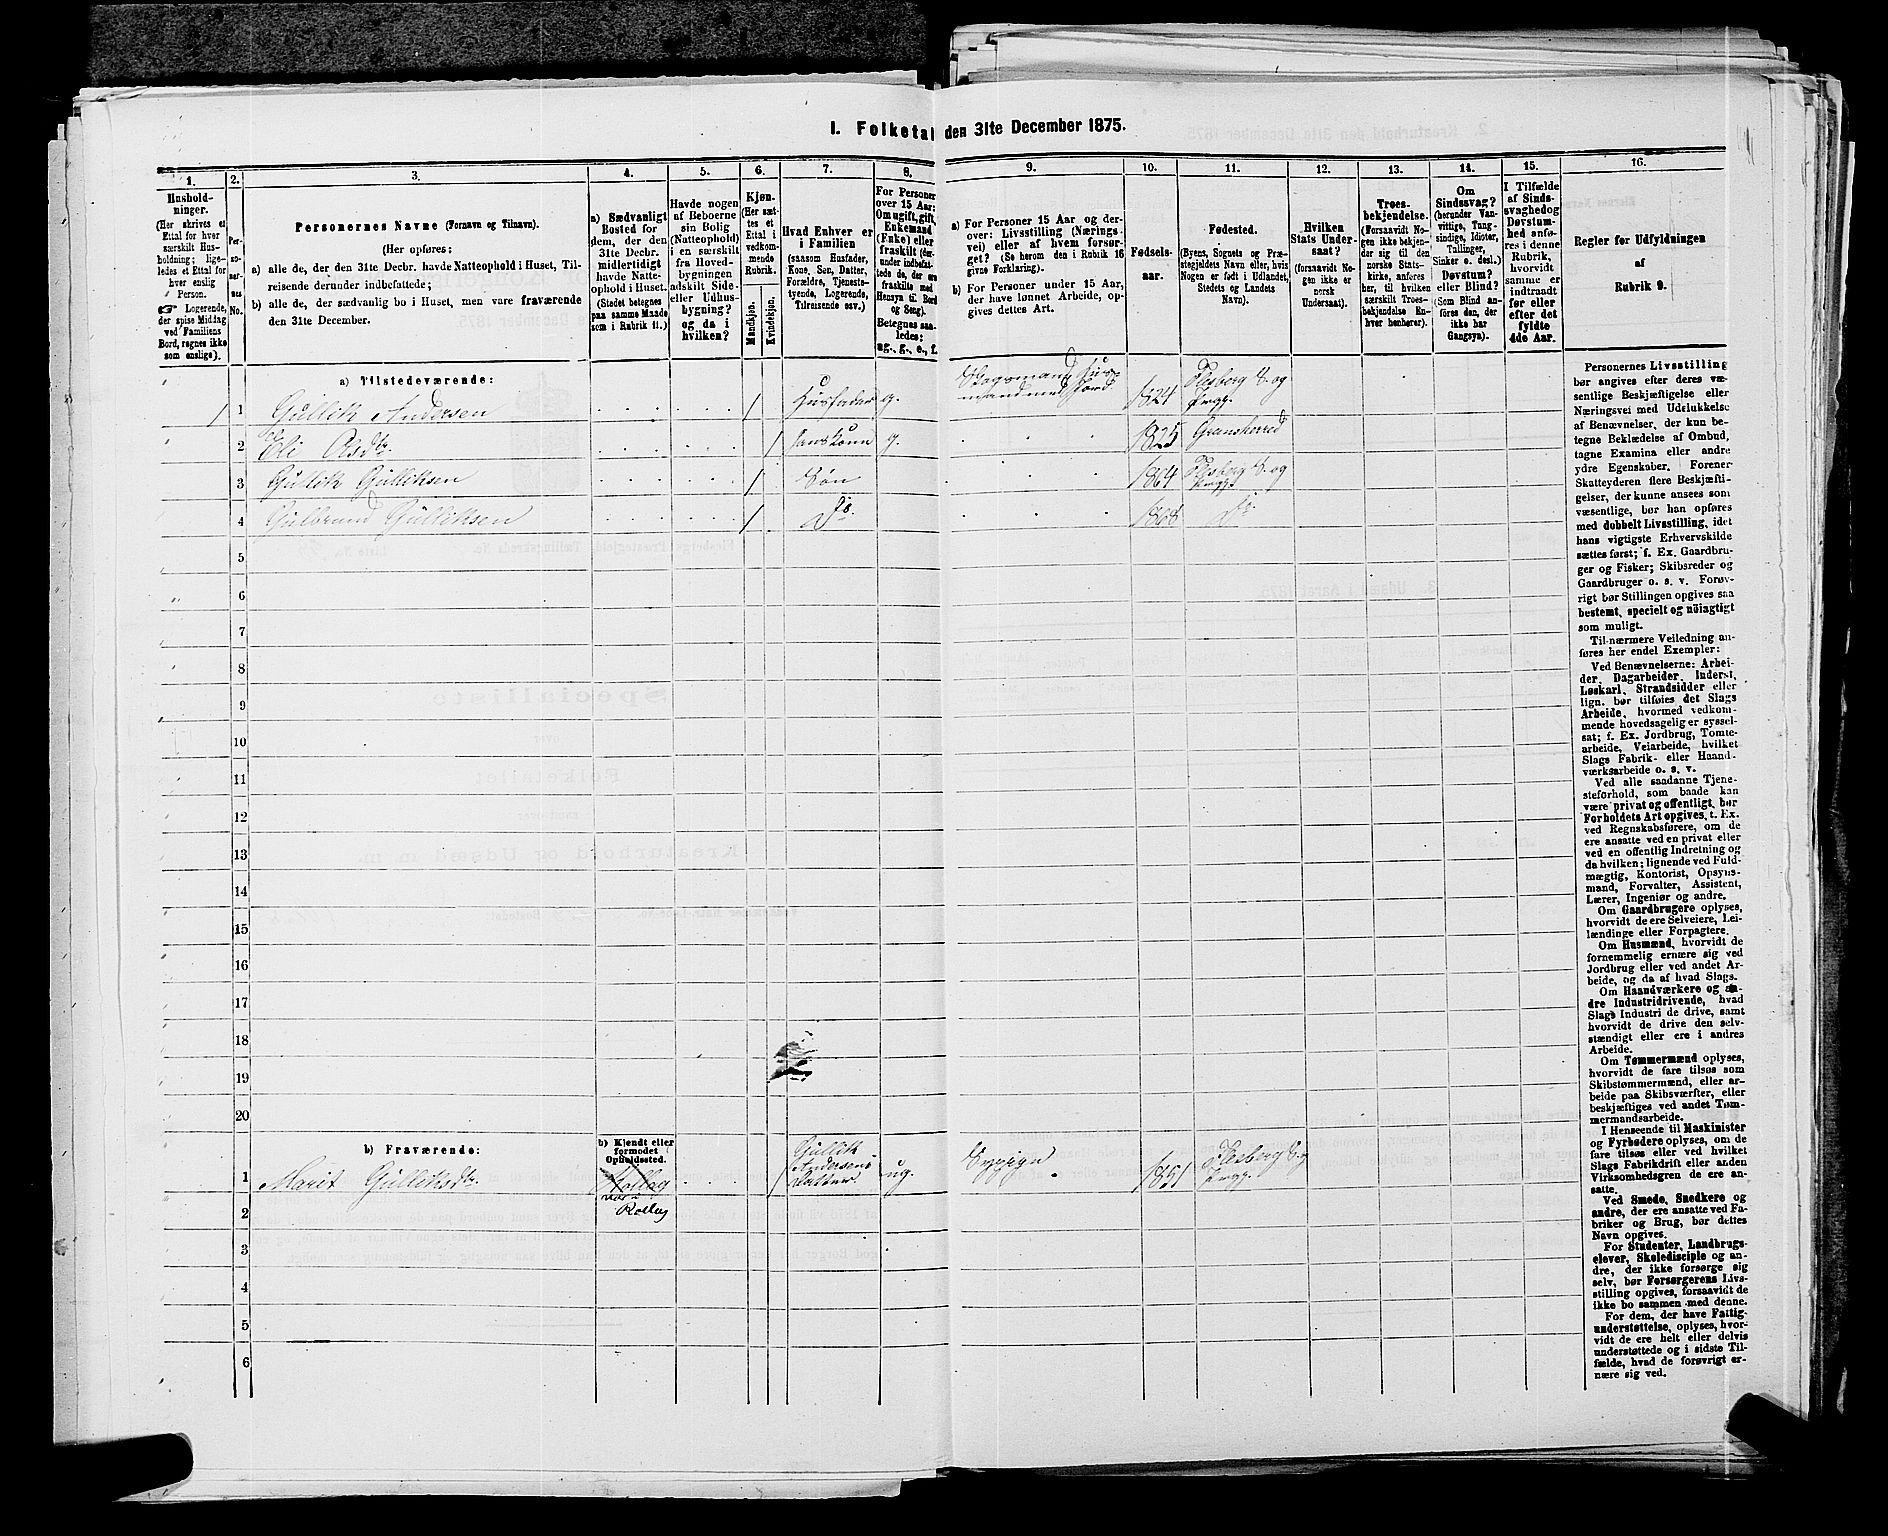 I. Folketal den 31te December 1875.
1.
2.
3.
4.
5.
6.
7.
8.
9.
10.
11.
12.
13.
14.
15.
16.
Hushold-
ninger.
(Her skrives et
Ettal for hver
særskilt Hus-
holdning; lige-
ledes et Ettal for
hver enslig
Person.
☞ Logerende,
der spise Middag
ved Familiens
Bord, regnes ikke
som enslige).
Per-
so-
ner-
nes
No.
Personernes Navne (Fornavn og Tilnavn).
(Her opføres:
a) alle de, der den 31te Decbr. havde Natteophold i Huset, Til-
reisende derunder indbefattede;
b) alle de, der sædvanlig bo i Huset, men vare fraværende
den 31te December.
a) Sædvanligt
Bosted for
dem, der den
31te Decbr.
midlertidigt
havde Natte-
ophold i Huset.
(Stedet betegnes
paa samme Maade
som i Rubrik 11.)
Havde nogen
af Beboerne
sin Bolig
(Natteophold)
i en særskilt
fra Hoved-
bygningen
adskilt Side-
eller Udhus-
bygning?
og da i
hvilken?
Kjøn.
(Her sæt-
tes et
Ettal i
vedkom-
mende
Rubrik.
Mandkjøn.
Kvindekjøn.
Hvad Enhver er
i Familien
(saasom Husfader,
Kone, Søn, Datter,
Forældre, Tjeneste-
tyende, Logerende,
Tilreisende osv.)
For Personer
over 15 Aar:
Om ugift, gift,
Enkemand
(Enke) eller
fraskilt (der-
under indbefat-
tede de, der ere
fraskilte med
Hensyn til Bord
og Seng).
Betegnes saa-
ledes:
ug., g., e., f.
a) For Personer 15 Aar og der-
over: Livsstilling (Nærings-
vei) eller af hvem forsør-
get? (Se herom den i Rubrik 16
givne Forklaring).
b) For Personer under 15 Aar,
der have lønnet Arbeide, op-
gives dettes Art.
Fødsels-
aar.
Fødested.
(Byens, Sognets og Præ-
stegjeldets Navn eller, hvis
Nogen er født i Udlandet,
Stedets og Landets
Navn).
Hvilken
Stats Under-
saat?
(forsaavidt No-
gen ikke er
norsk
Undersaat).
Troes-
bekjendelse.
(Forsaavidt No-
gen ikke bekjen-
der sig til den
norske Stats-
kirke, anføres
her, til hvilken
særskilt Troes-
bekjendelse En-
hver henhører).
Om
Sindssvag?
(herunder Van-
vittige, Tung-
sindige, Idioter,
Tullinger,
Sinker o. desl.)
Døvstum?
eller Blind?
(Som Blind an-
føres den, der
ikke har
Gangsyn).
I Tilfælde
af Sinds-
svaghed og
Døvstum-
hed anfø-
res i denne
Rubrik,
hvorvidt
samme er
indtraadt
før eller
efter det
fyldte
4de Aar.
Regler for Udfyldningen
af
Rubrik 9.
a) Tilstedeværende:
1 1 Gullik Andersen / Husfader g. Skogsmand, Hus-
mand med Jord. 1824 Flesberg S. og
Prgj.
2 Eli Olsdtr. / Hans Kone g. 1825 Gransherred
3 Gullik Gulliksen / Søn 1864 Flesberg S. og
Prgj.
4 Gulbrand Gulliksen / Do. 1868 Do.
5
6
7
8
9
10
11
12
13
14
15
16
17
18
19
20
b) Fraværende:
b) Kjendt eller
formodet
Opholdssted.
1 Marit Gulliksdtr. Rollag / Gullik
Andersens
Datter ug. Sypige 1851 Flesberg S. og
Prgj.
2
3
4
5
6
Personernes Livsstilling
bør angives efter deres væ-
sentlige Beskjæftigelse eller
Næringsvei med Udelukkelse
af Benævnelser, der kun be-
tegne Beklædelse af Ombud,
tagne Examina eller andre
ydre Egenskaber. Forener
Skatteyderen flere Beskjæfti-
gelser, der kunne ansees som
væsentlige, bør han opføres
med dobbelt Livsstilling, idet
hans vigtigste Erhvervskilde
sættes først; f. Ex. Gaardbru-
ger og Fisker; Skibsreder og
Gaardbruger o. s. v. Forøv-
rigt bør Stillingen opgives saa
bestemt, specielt og nöiagtigt
som muligt.
Til nærmere Veiledning an-
føres her endel Exempler:
Ved Benævnelserne: Arbei-
der, Dagarbeider, Inderst,
Løskarl, Strandsidder eller
lign. bør tilføies det Slags
Arbeide, hvormed vedkom-
mende hovedsagelig er syssel-
sat; f. Ex. Jordbrug, Tomte-
arbeide, Veiarbeide, hvilket
Slags Fabrik- eller Haand-
værksarbeide o. s. v.
Ved alle saadanne Tjene-
steforhold, som baade kan
være privat og offentligt, bør
Forholdets Art opgives, t. Ex.
ved Regnskabsførere, om de
ere ansatte ved en privat eller
ved en offentlig Indretning og
da hvilken; lignende ved Fuld-
mægtig, Kontorist, Opsyns-
mand, Forvalter, Assistent,
Lærer, Ingeniør og andre.
Om Gaardbrugere oplyses,
hvorvidt de ere Selveiere, Lei-
lændinge eller Forpagtere.
Om Husmænd, hvorvidt de
fornemmelig ernære sig ved
Jordbrug eller ved andet Ar-
beide, og da af hvad Slags.
Om Haandværkere og an-
dre Industridrivende, hvad
Slags Industri de drive, samt
hvorvidt de drive den selv-
stændigt eller ere i andres
Arbeide.
Om Tømmermænd oplyses,
hvorvidt de fare tilsøs som
Skibstømmermænd, eller ar-
beide paa Skibsværfter, eller
beskjæftiges ved andet Tøm-
mermandsarbeide.
I Henseende til Maskinister
og Fyrbødere oplyses, om de
fare tilsøs eller ved hvilket
Slags Fabrikdrift eller anden
Virksomhedsgren de ere an-
satte.
Ved Smede, Snedkere og
andre, der ere ansatte ved Fa-
briker og Brug, bør dettes
Navn opgives.
For Studenter, Landbrugs-
elever, Skoledisciple og an-
dre, der ikke forsørge sig
selv, bør Forsørgerens Livs-
stilling opgives, forsaavidt de
ikke bo sammen med denne.
For dem, der have Fattig-
understøttelse, oplyses, hvor-
vidt de ere helt eller delvis
understøttede og i sidste Til-
fælde, hvad de forøvrigt er-
nære sig ved.